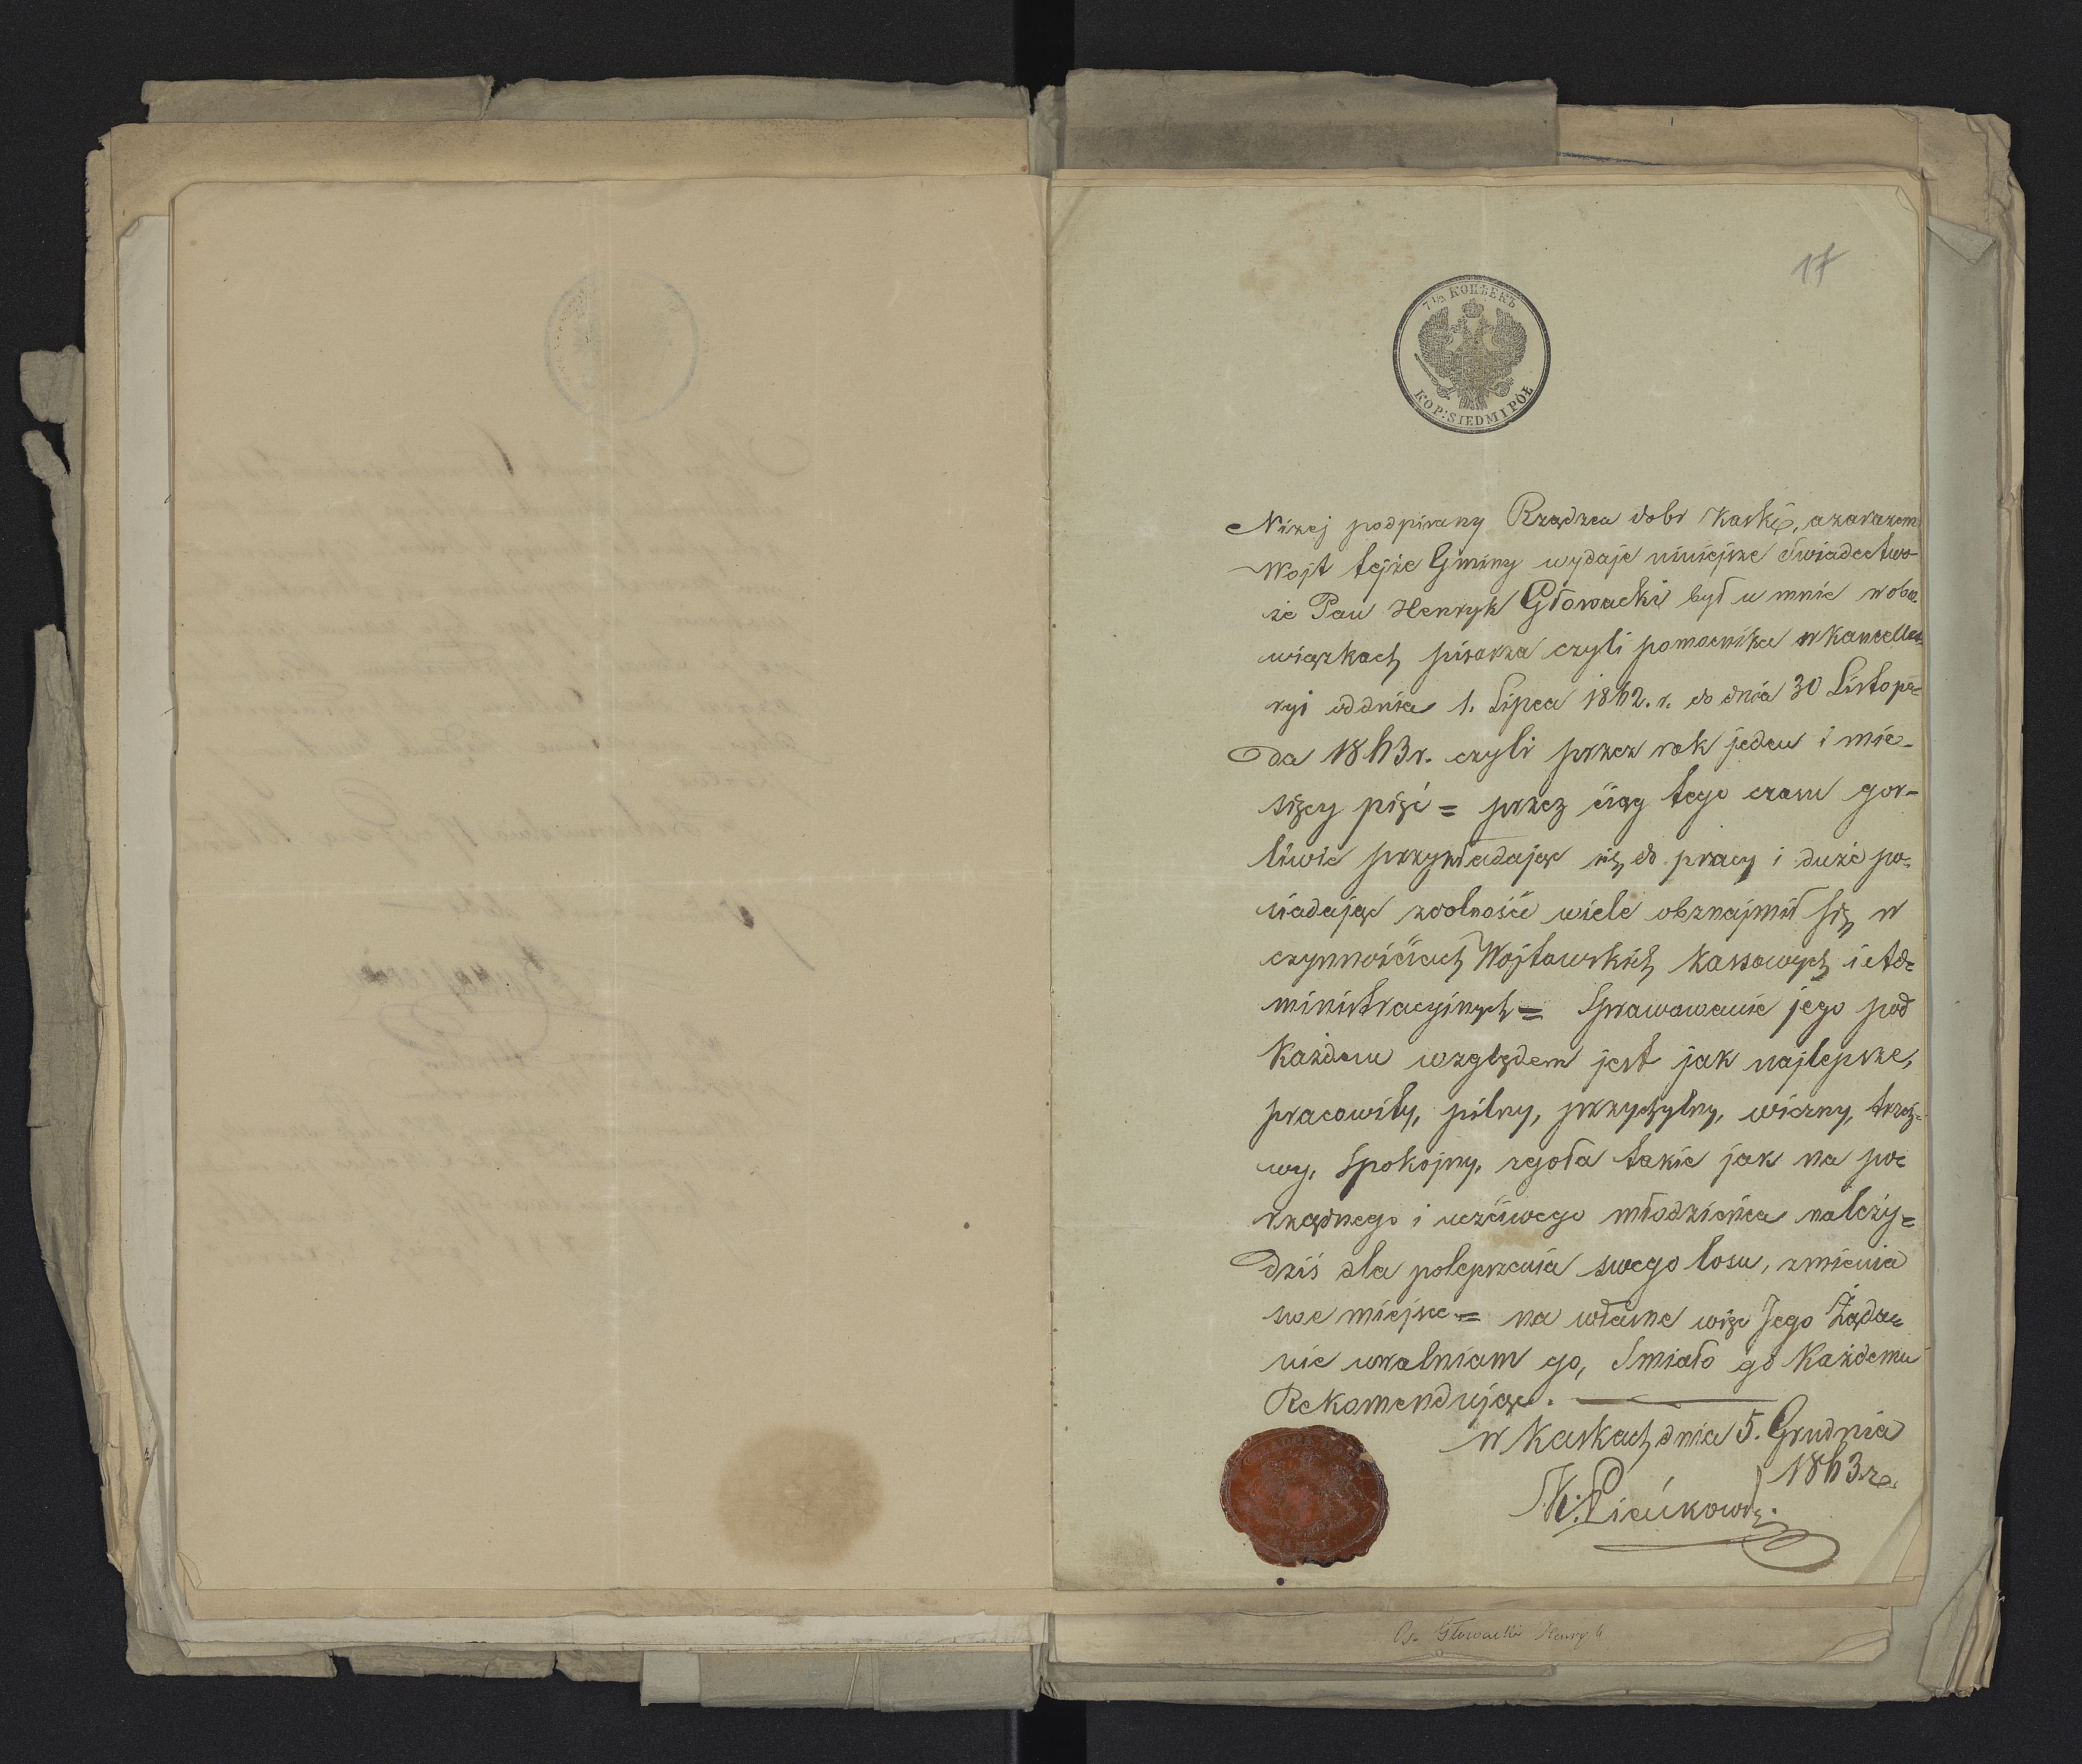 17
7½ КОПѢЕКЪ
KOP: SIEDM I PÓŁ
Niżej podpisany Rządzca dobr Kaski, a zarazem
Wojt tejże Gminy wydaje niniejsze Świadectwo
że Pan Henryk Głowacki był u mnie w obo-
wiązkach pisarza czyli pomocnika w Kancella-
ryi od dnia 1. Lipca 1862. r. do dnia 30 Listopa-
da 1863 r. czyli przez rok jeden i mie-
sięcy pięć = przez ciąg tego czasu gor-
liwie przykładając się do pracy i duże po-
siadając zdolności wiele obznajmił się w
czynnościach Wojtowskich Kassowych i Ad=
ministracyjnych = Sprawowanie jego pod
Każdem względem jest jak najlepsze,
pracowity, pilny, przychylny, wierny, trzeź-
wy, Spokojny, zgoła takie jak na po-
rządnego i uczciwego młodzieńca należy=
dziś dla polepszenia swego losu, zmienia
swe miejsce = na własne więc Jego Żąda-
nie uwalniam go, Śmiało go Każdemu
Rekomendując.
w Kaskach dnia 5. Grudnia
1863 r.
Głowacki Henryk